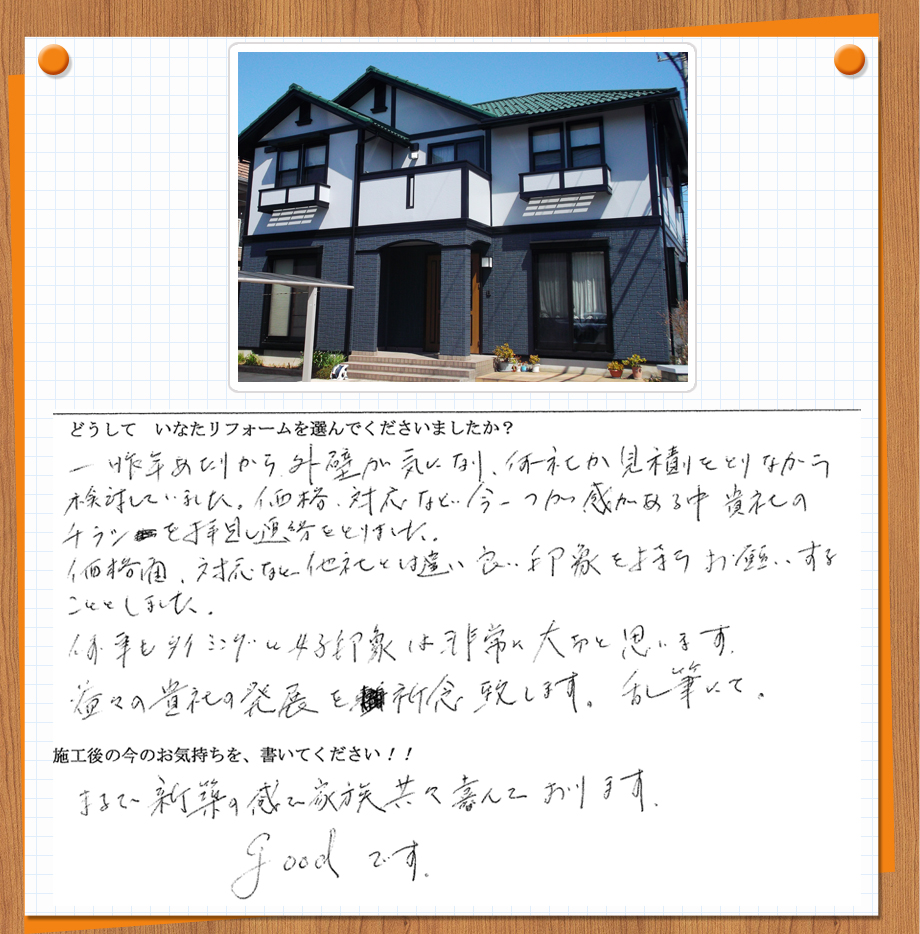 どうして　いなたリフォームを選んでくださいましたか？
一昨年あたりから、外壁が気になり、何社か見積りをとりながら
検討していました。価格、対応など、今一つの感がある中 貴社の
チラシを拝見し連絡をとりました。
価格面、対応など他社とは違い良い印象を持ち お願いする
こととしました。
何事もタイミングと好印象は非常に大切と思います。
益々の貴社の発展を祈念致します。乱筆にて。
施工後の今のお気持ちを、書いてください！！
まるで新築の感で家族共々喜んでおります。
goodです。